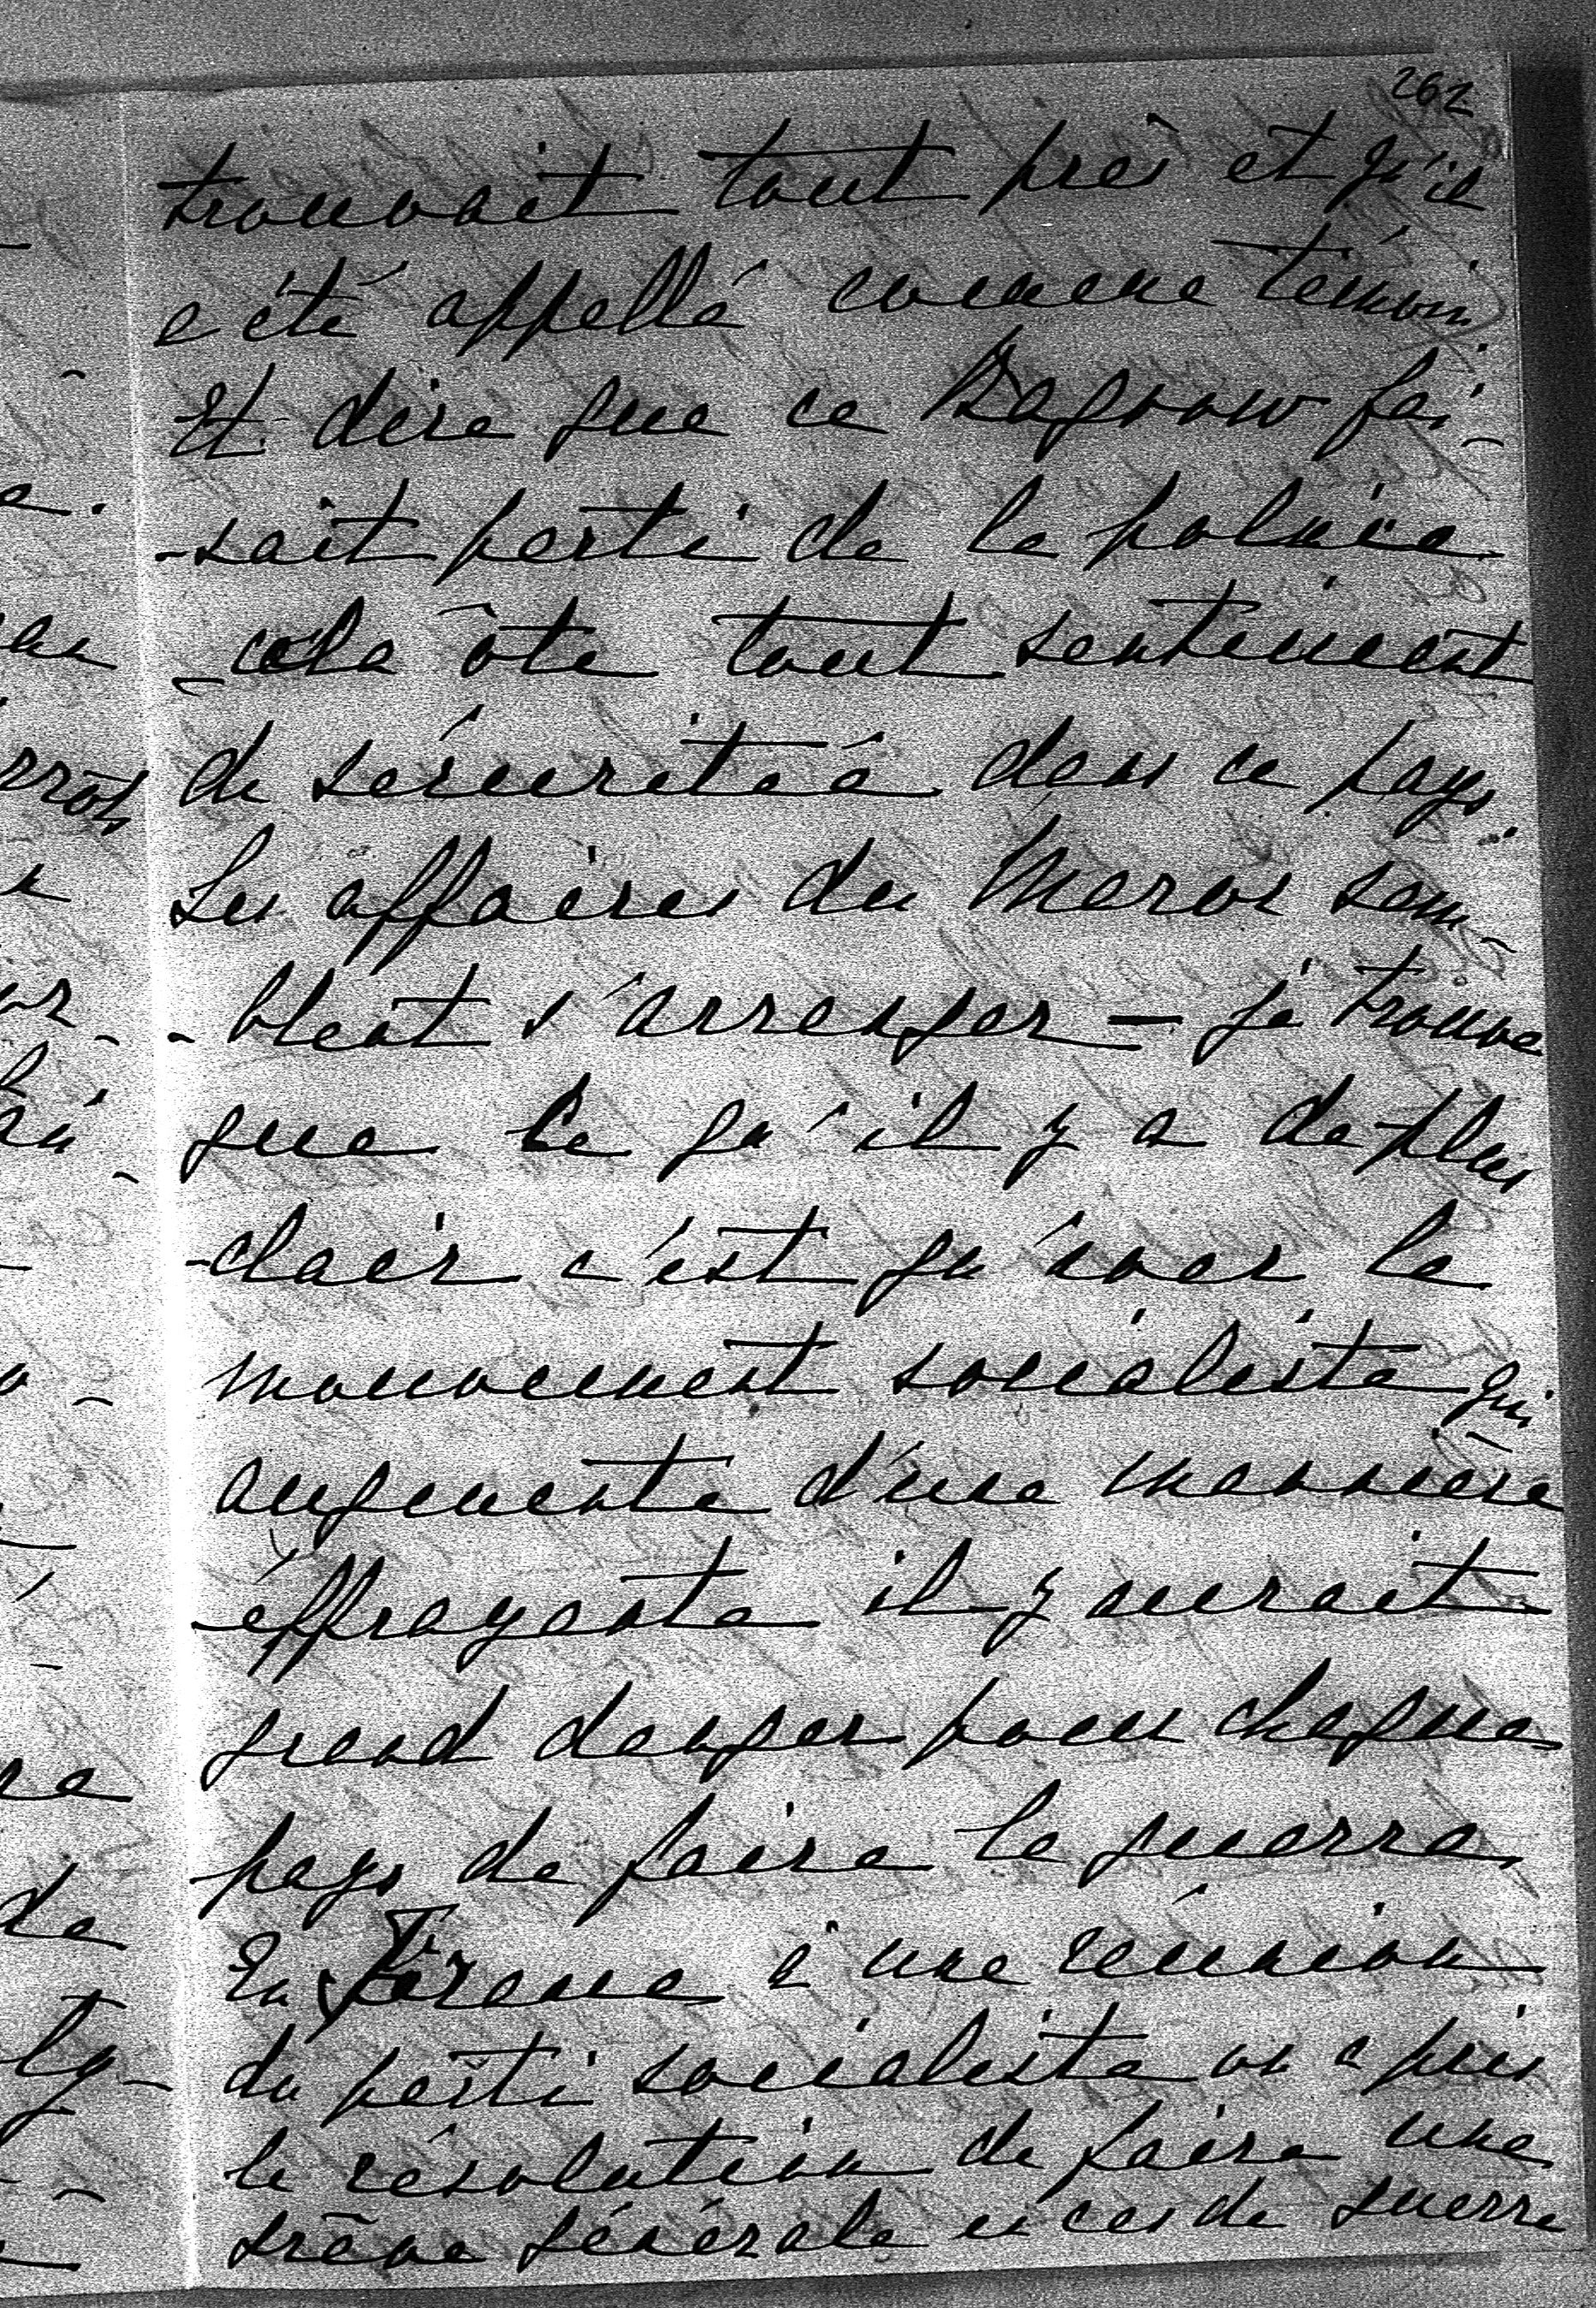 262
trouvait tout près et qu'il
a été appellé comme témoin
Et dire que ce Bagrow fai-
-sait parti de la police
- cela ôte tout sentiment
de sécurité dans ce pays.
Les affaires du Maroc sem-
-blent s'arranger — je trouve
que ce qu'il y a de plus
clair c'est qu'avec le
mouvement socialiste qui
augmente d'une manière
éffrayante il y aurait
grand danger pour chaque
pays de faire la guerre
En France à une réunion
du parti socialiste on a pris
la résolution de faire une
grêve générale en cas de guerre